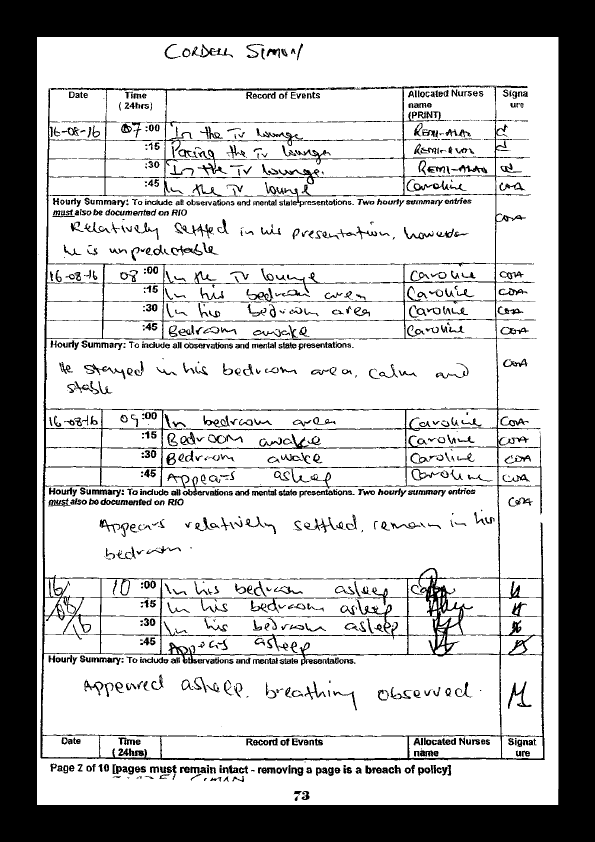 CORDELL SIMON
Date Time (24hrs) Record of Events Allocated Nurses name (PRINT) Signa ure
16-08-16 07:00 In the TV lounge REMI-ALAO
:15 Pacing the TV lounge REMI-ALAO
:30 In the TV lounge. REMI-ALAO
:45 In the TV lounge Caroline COA
Hourly Summary: To include all observations and mental state presentations. Two hourly summary entries
must also be documented on RIO COA
Relatively settled in his presentation, however
he is unpredictable
16-08-16 08:00 In the TV lounge Caroline COA
:15 In his bedroom area Caroline COA
:30 In his bedroom area Caroline COA
:45 Bedroom awake Caroline COA
Hourly Summary: To include all observations and mental state presentations.
He stayed in his bedroom area, calm and COA
stable
16-08-16 09:00 In bedroom area Caroline COA
:15 Bedroom awake Caroline COA
:30 Bedroom awake Caroline COA
:45 Appears asleep Caroline COA
Hourly Summary: To include all observations and mental state presentations. Two hourly summary entries
must also be documented on RIO COA
Appears relatively settled, remain in his
bedroom.
16/08/16 10:00 In his bedroom asleep
:15 In his bedroom asleep
:30 In his bedroom asleep
:45 Appears asleep
Hourly Summary: To include all observations and mental state presentations.
Appeared asleep, breathing observed.
Date Time (24hrs) Record of Events Allocated Nurses name Signat ure
Page 2 of 10 [pages must remain intact - removing a page is a breach of policy]
73